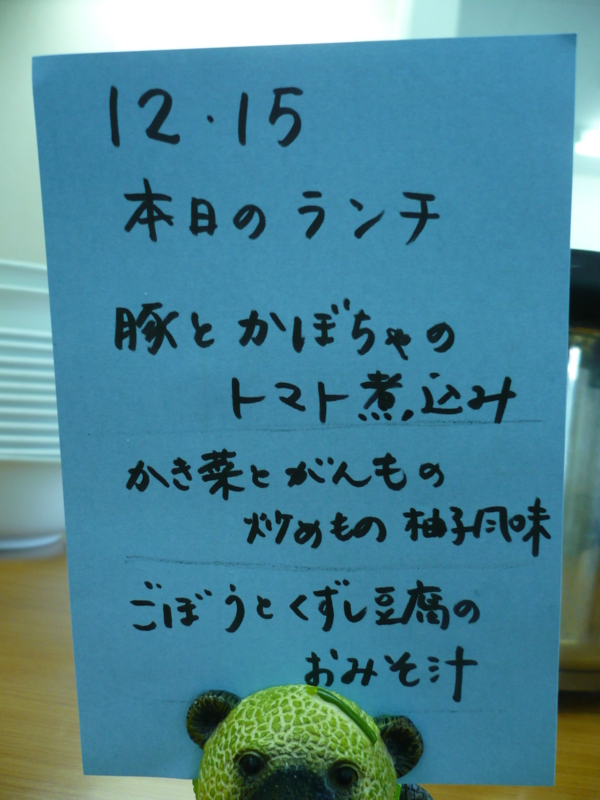 12.15
本日のランチ
豚とかぼちゃの
トマト煮込み
かき菜とがんもの
炒めもの 柚子風味
ごぼうとくずし豆腐の
おみそ汁